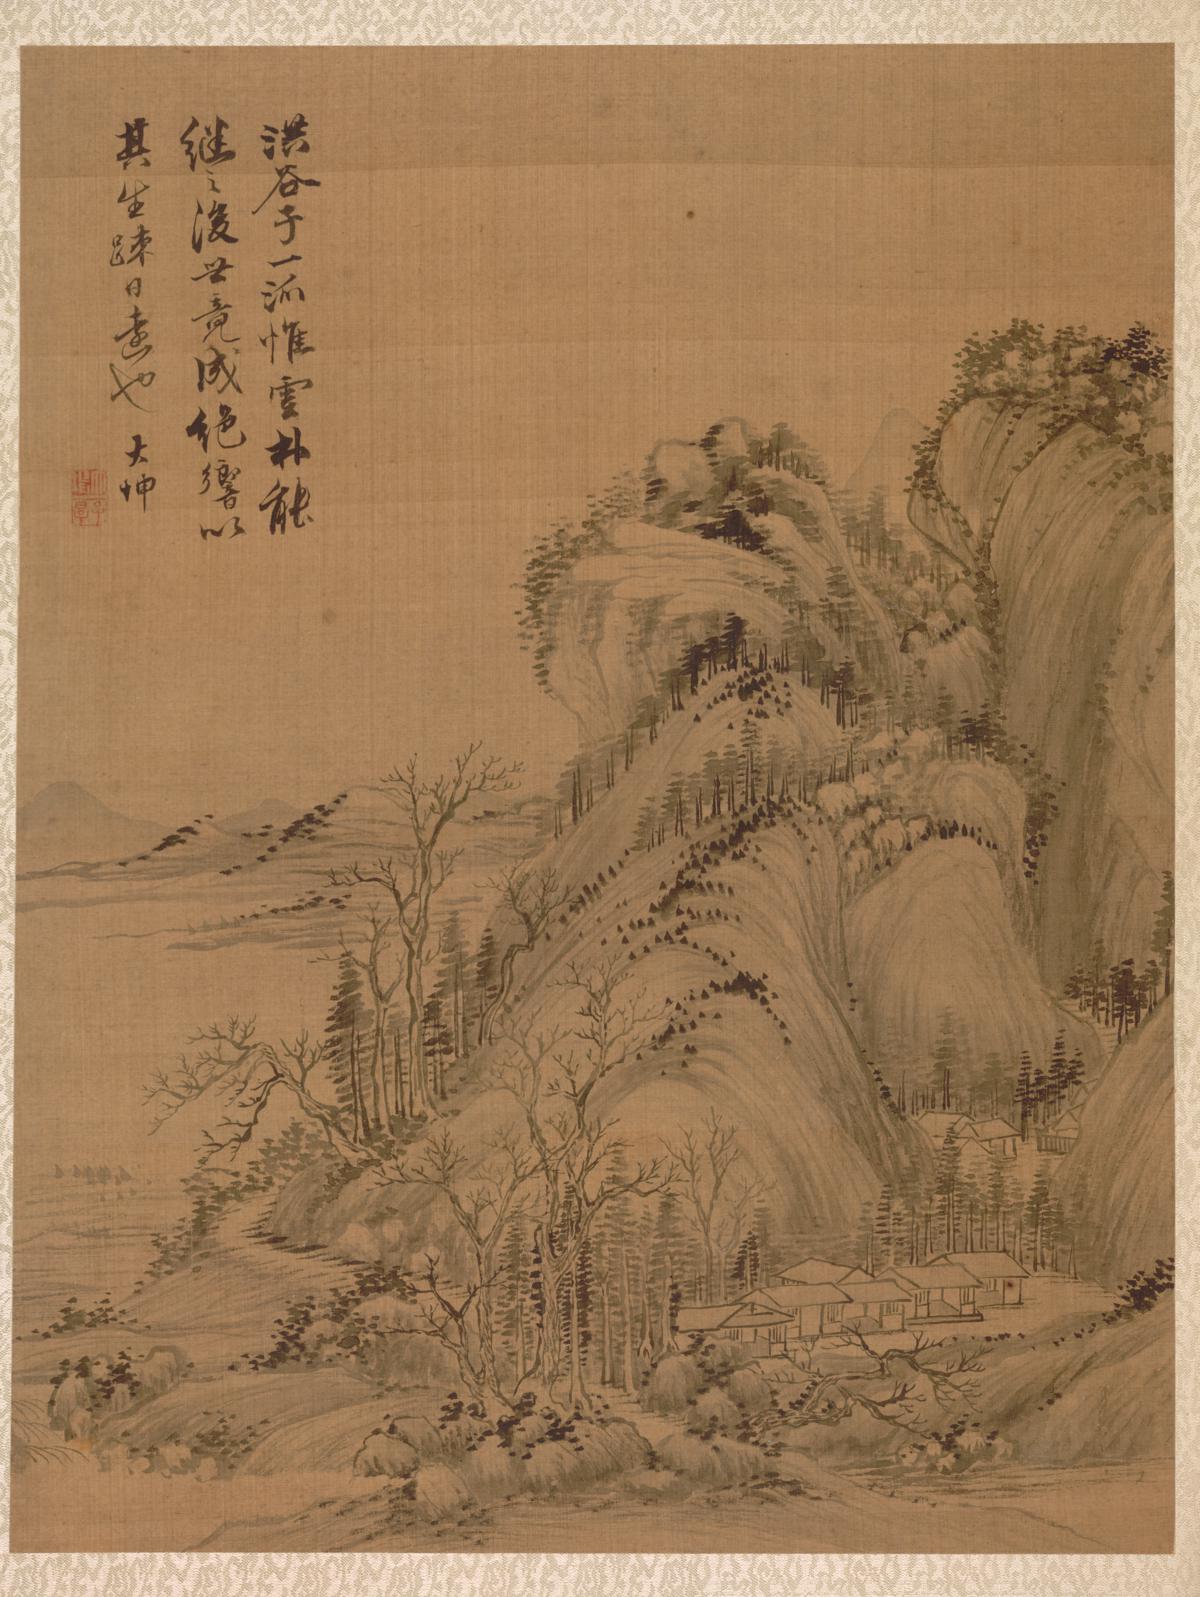 洪谷子一派惟雲林能
继之後世竟成絕響以
其生踈日遠也 大坤